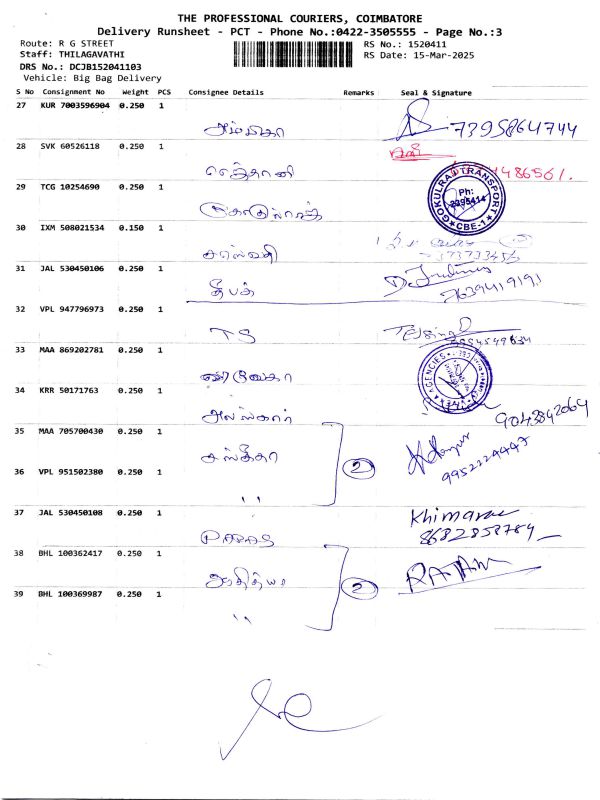 THE PROFESSIONAL COURIERS, COIMBATORE
Delivery Runsheet - PCT - Phone No.:0422-3505555 - Page No.:3
Route: R G STREET
RS No.: 1520411
Staff: THILAGAVATHI
RS Date: 15-Mar-2025
DRS No.: DCJB152041103
Vehicle: Big Bag Delivery
S No Consignment No Weight PCS Consignee Details Remarks Seal & Signature
27 KUR 7003596904 0.250 1
அம்பிகா 7395864744
28 SVK 60526118 0.250 1
486561.
29 TCG 10254690 0.250 1
GOKULRAJ TRANSPORT
Ph:
2395414
CBE-1
30 IXM 508021534 0.150 1
31 JAL 530450106 0.250 1
தீபக் 7639419191
32 VPL 947796973 0.250 1
TS
33 MAA 869202781 0.250 1
AGENCIES
34 KRR 50171763 0.250 1
அலங்கார் 9043842064
35 MAA 705700430 0.250 1
2
9952224447
36 VPL 951502380 0.250 1
"
37 JAL 530450108 0.250 1
Khimaram
PARAS 8682858784
38 BHL 100362417 0.250 1
ஆதித்யா 2 RATAN
39 BHL 100369987 0.250 1
"